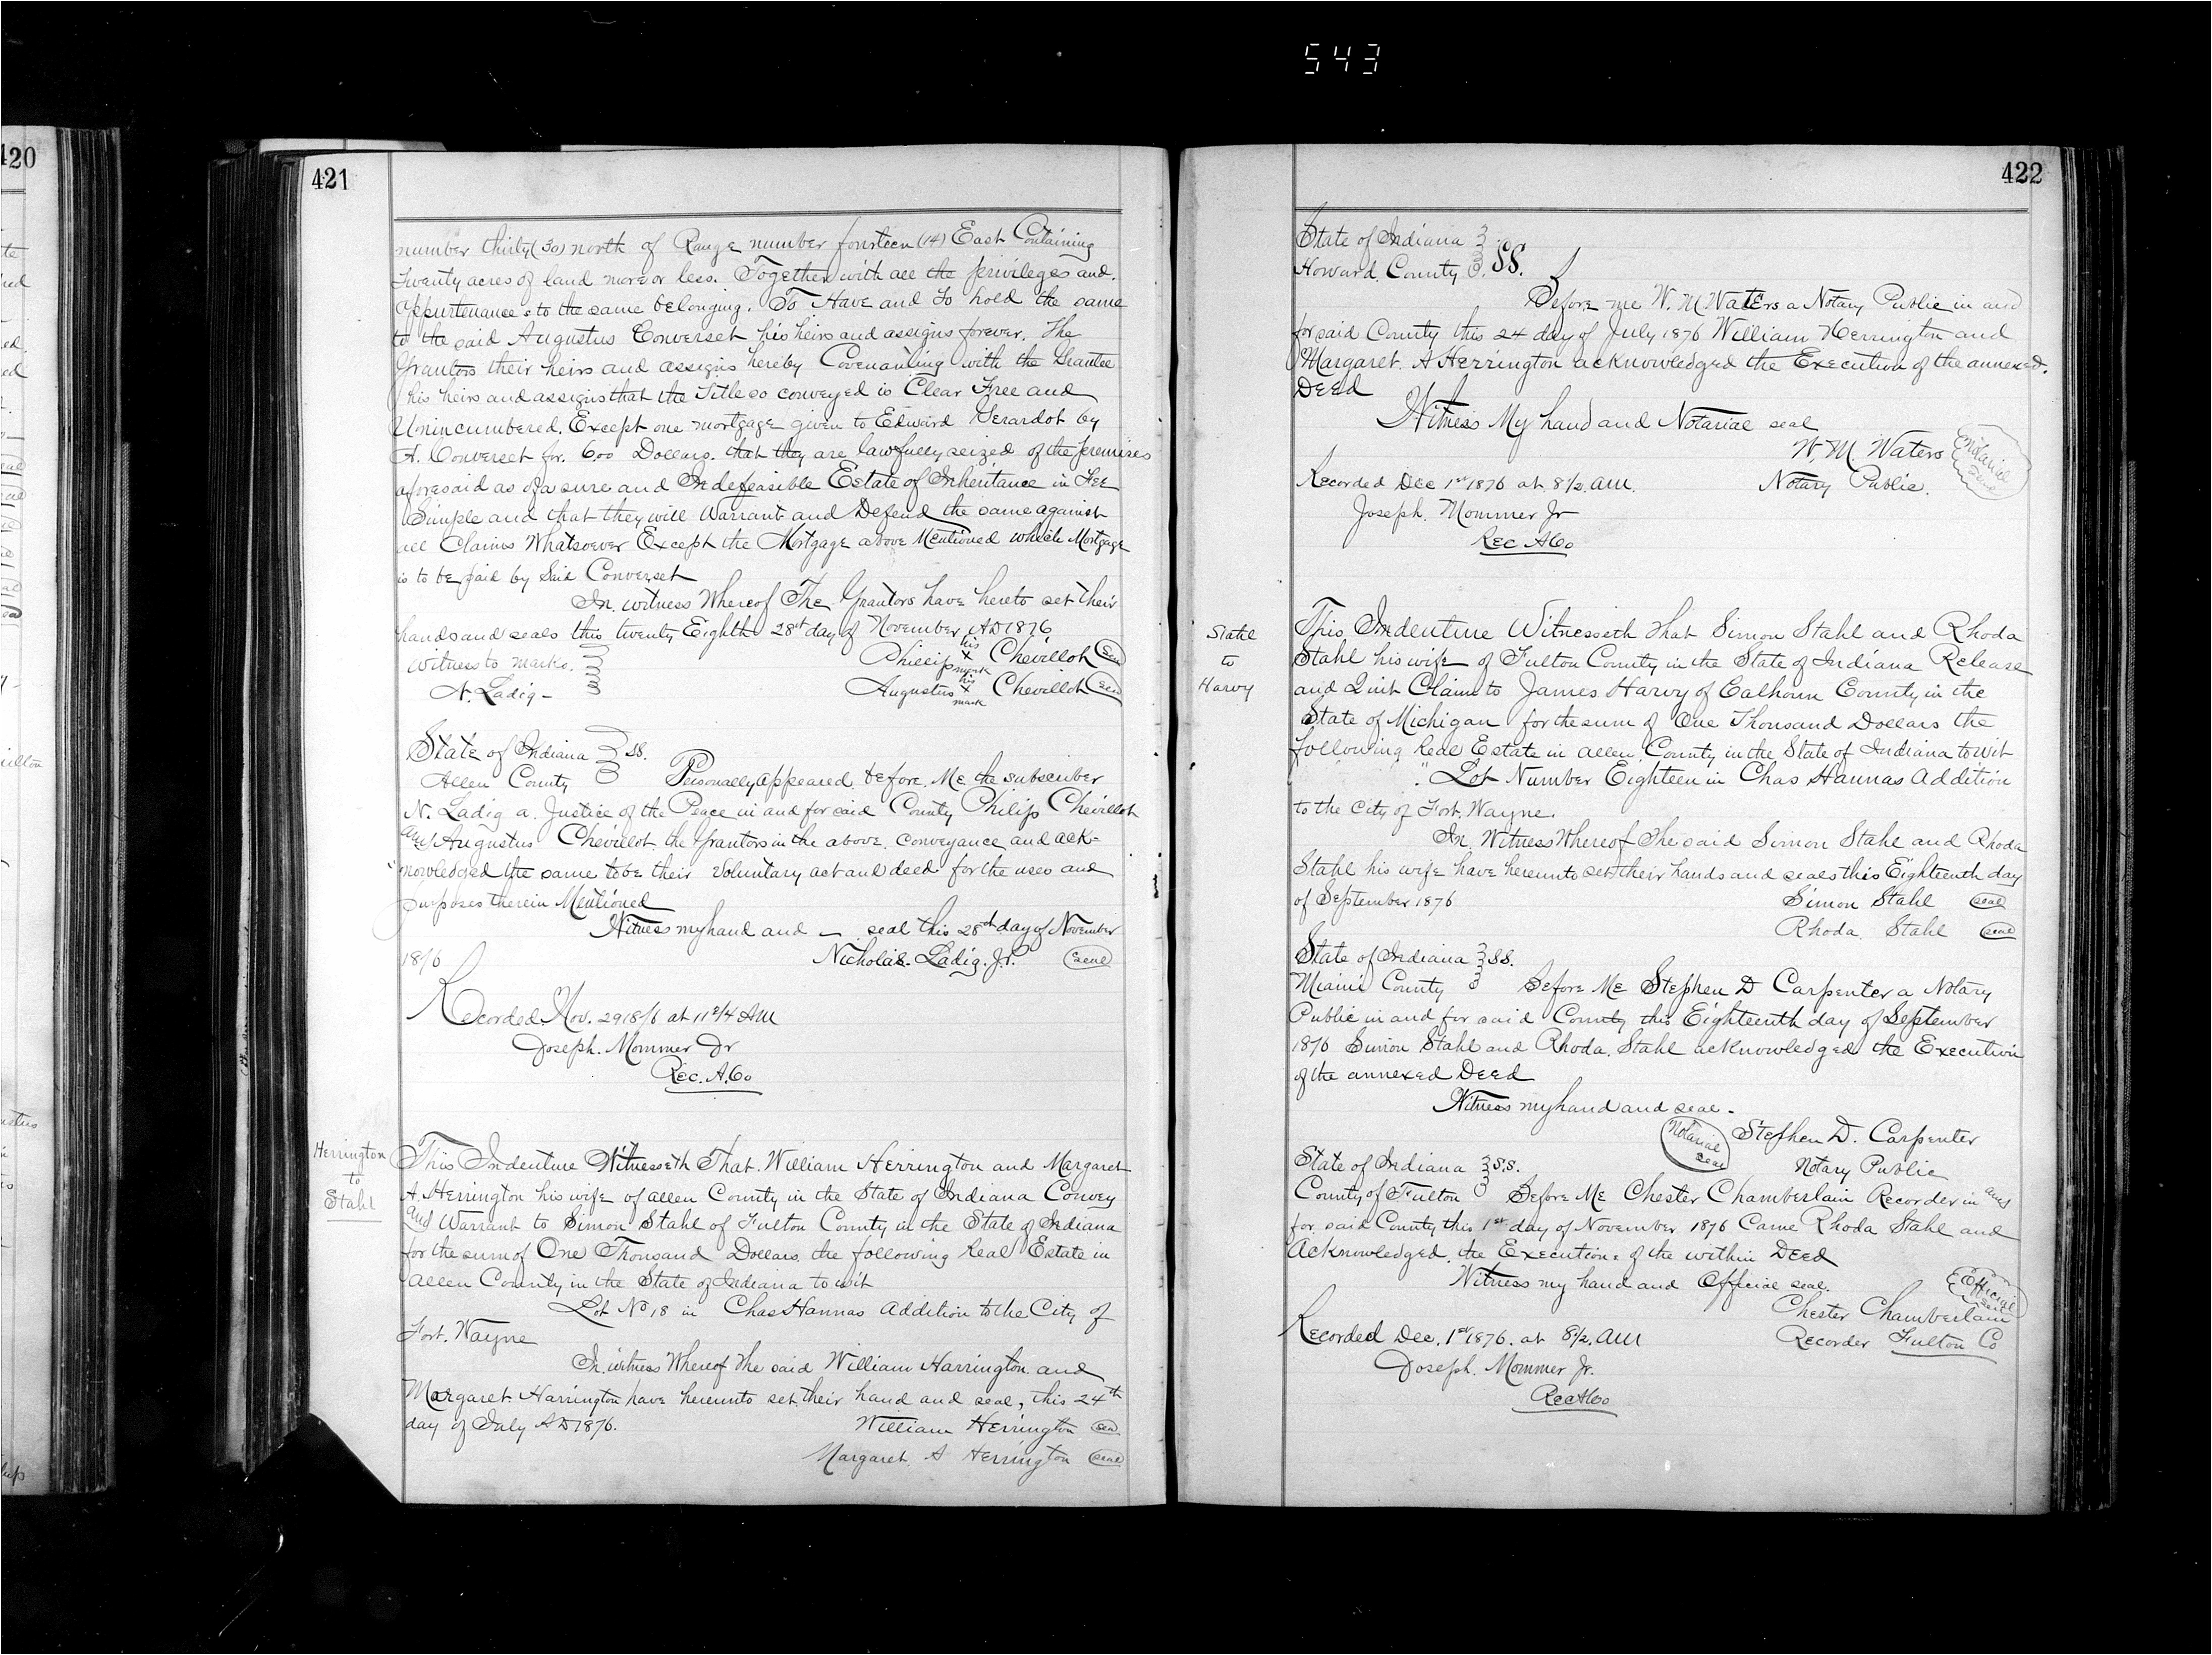 543
420
421
number thirty (30) north of Range number fourteen (14) East Containing
Twenty acres of land more or less. Together with all the privileges and
appurtenances to the same belonging. To Have and To hold the same
to the said Augustus Converset his heirs and assigns forever. The
Grantors their heirs and assigns hereby Covenanting with the Grantee
his heirs and assigns that the Title so conveyed is Clear Free and
Unincumbered. Except one mortgage given to Edward Gerardot by
A. Converset for. 600 Dollars. that they are lawfully seized of the premises
aforesaid as of a sure and Indefeasible Estate of Inheritance in Fee
Simple and that they will Warrant and Defend the same against
all Claims Whatsoever Except the Mortgage above Mentioned which Mortgage
is to be paid by Said Converset
In witness Whereof The Grantors have hereto set their
hands and seals this twenty Eighth 28st day of November AD 1876
Witness to marks.
N. Ladig -
Phillip his X mark Chevillot Seal
Augustus his X mark Chevillot Seal
State of Indiana SS.
Allen County Personally appeared before Me the subscriber
N. Ladig a Justice of the Peace in and for said County Philip Chevillot
and Augustus Chevillot the Grantors in the above conveyance and ack=
nowledged the same to be their Voluntary act and deed for the uses and
purposes therein Mentioned
Witness my hand and — seal this 28st day of November
1876 Nicholas. Ladig. J.P. Seal
Recorded Nov. 29 1876 at 11 3/4 AM
Joseph. Mommer Jr
Rec. A. Co
Herrington
to
Stahl
This Indenture Witnesseth That. William Herrington and Margaret
A. Herrington his wife of Allen County in the State of Indiana Convey
and Warrant to Simon Stahl of Fulton County in the State of Indiana
for the sum of One Thousand Dollars. the following Real Estate in
Allen County in the State of Indiana to wit
Lot No 18 in Chas Hannas Addition to the City of
Fort. Wayne
In witness Whereof the said William Harrington and
Margaret. Harrington have hereunto set their hand and seal, this 24th
day of July AD 1876.
William Herrington Seal
Margaret. A Herrington Seal
422
State of Indiana
Howard County SS.
Before me W. M. Waters a Notary Public in and
for said County this 24 day of July 1876 William Herrington and
Margaret. A Herrington acknowledged the Execution of the annexed.
Deed
Witness My hand and Notarial seal
W. M. Waters
Notary Public.
Notarial Seal
Recorded Dec 1st 1876 at 8 1/2. AM.
Joseph. Mommer Jr
Rec A Co
Stahl
to
Harvy
This Indenture Witnesseth that Simon Stahl and Rhoda
Stahl his wife of Fulton County in the State of Indiana Release
and Quit Claim to James Harvy of Calhoun County in the
State of Michigan for the sum of One Thousand Dollars the
following Real Estate in Allen County in the State of Indiana to wit
Lot Number Eighteen in Chas Hannas Addition
to the City of Fort. Wayne.
In Witness Whereof the said Simon Stahl and Rhoda
Stahl his wife have hereunto set their hands and seals this Eighteenth day
of September 1876 Simon Stahl Seal
Rhoda. Stahl Seal
State of Indiana SS.
Miami County Before Me Stephen D Carpenter a Notary
Public in and for said County this Eighteenth day of September
1876 Simon Stahl and Rhoda. Stahl acknowledged the Execution
of the annexed Deed
Witness my hand and seal -
Notarial Seal
Stephen D. Carpenter
Notary Public
State of Indiana S.S.
County of Fulton Before Me Chester Chamberlain Recorder in and
for said County this 1st day of November 1876 Came Rhoda Stahl and
Acknowledged. the Execution of the within Deed
Witness my hand and Official seal.
Official Seal
Chester Chamberlain
Recorder Fulton Co
Recorded Dec. 1st 1876. at 8 1/2. AM
Joseph. Mommer Jr.
Rec A Co